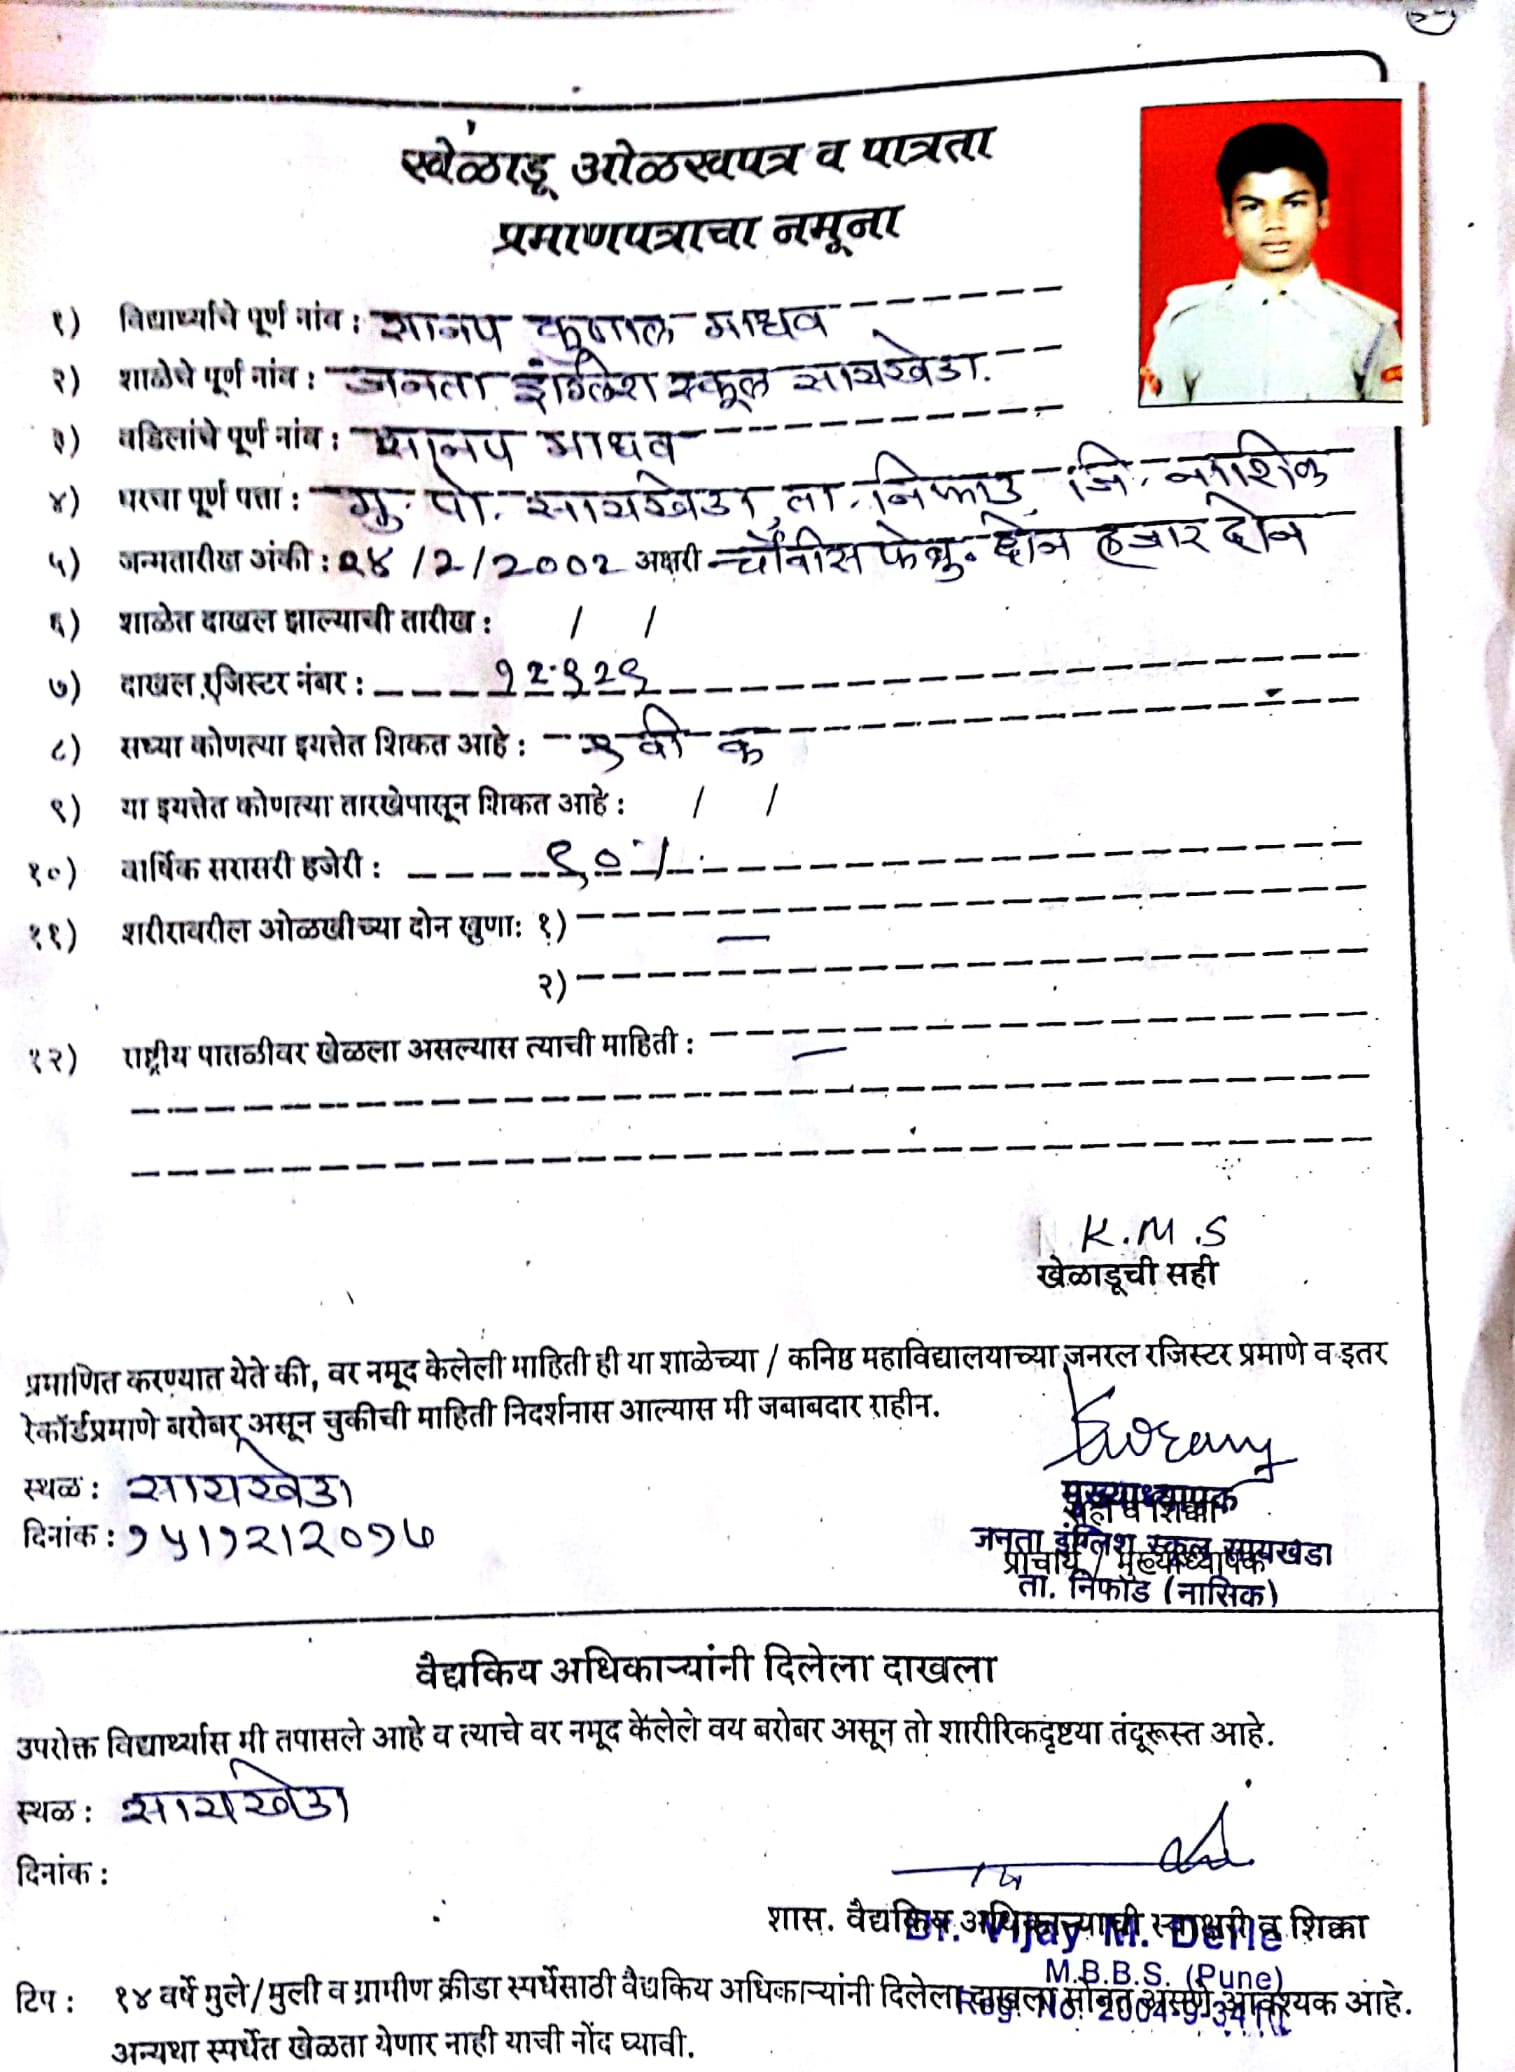 खेळाडू ओळखपत्र व पात्रता
प्रमाणपत्राचा नमूना
१) विद्यार्थ्याचे पूर्ण नांव : सानप कुणाल माधव
२) शाळेचे पूर्ण नांव : जनता इंग्लिश स्कूल सायखेडा.
३) वडिलांचे पूर्ण नांव : सानप माधव
४) घरचा पूर्ण पत्ता : मु. पो. सायखेडा, ता. निफाड, जि. नाशिक
५) जन्मतारीख अंकी : २४ / 2 / 2002 अक्षरी चोवीस फेब्रु. दोन हजार दोन
६) शाळेत दाखल झाल्याची तारीख : / /
७) दाखल रजिस्टर नंबर : १२९२९
८) सध्या कोणत्या इयत्तेत शिकत आहे : ९ वी क
९) या इयत्तेत कोणत्या तारखेपासून शिकत आहे : / /
१०) वार्षिक सरासरी हजेरी : ९०%
११) शरीरावरील ओळखीच्या दोन खुणा: १) —
२)
१२) राष्ट्रीय पातळीवर खेळला असल्यास त्याची माहिती : —
K.M.S
खेळाडूची सही
प्रमाणित करण्यात येते की, वर नमूद केलेली माहिती ही या शाळेच्या / कनिष्ठ महाविद्यालयाच्या जनरल रजिस्टर प्रमाणे व इतर
रेकॉर्डप्रमाणे बरोबर असून चुकीची माहिती निदर्शनास आल्यास मी जबाबदार राहीन.
स्थळ : सायखेडा
दिनांक : १५।१२।२०१७
मुख्याध्यापक
सही व शिक्का
जनता इंग्लिश स्कूल सायखेडा
प्राचार्य / मुख्याध्यापक
ता. निफाड (नासिक)
वैद्यकिय अधिकाऱ्यांनी दिलेला दाखला
उपरोक्त विद्यार्थ्यास मी तपासले आहे व त्याचे वर नमूद केलेले वय बरोबर असून तो शारीरिकदृष्टया तंदूरूस्त आहे.
स्थळ : सायखेडा
दिनांक :
शास. वैद्यकिय अधिकाऱ्याची स्वाक्षरी व शिक्का
Dr. Vijay M.
M.B.B.S. (Pune)
Reg. No. 2004
टिप : १४ वर्षे मुले/मुली व ग्रामीण क्रीडा स्पर्धेसाठी वैद्यकिय अधिकाऱ्यांनी दिलेला दाखला सोबत असणे आवश्यक आहे.
अन्यथा स्पर्धेत खेळता येणार नाही याची नोंद घ्यावी.